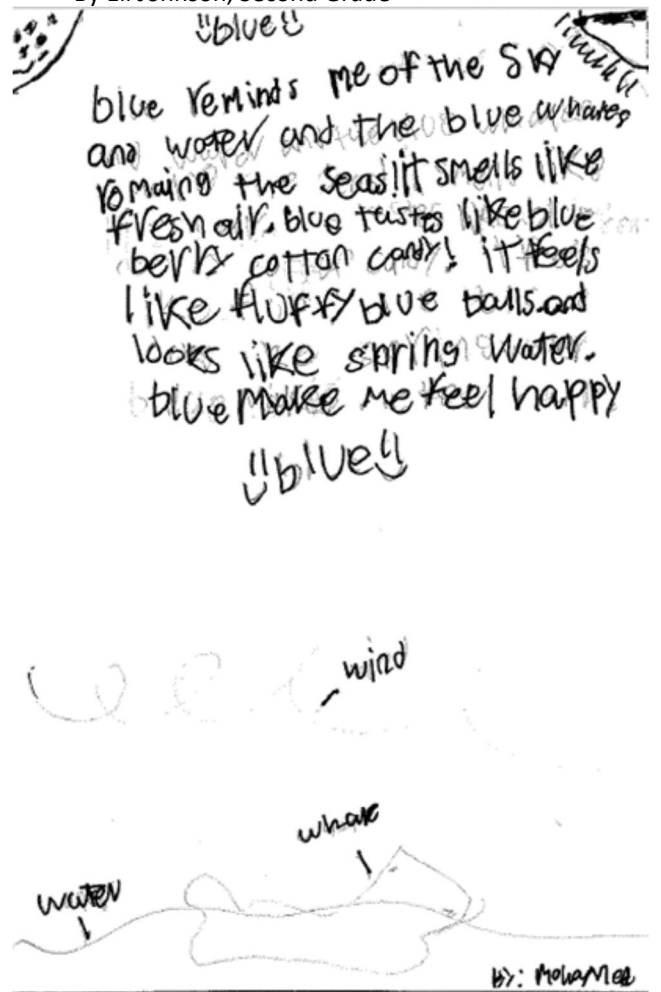 blue
blue reminds me of the sky
and water and the blue whales
romaing the seas!it smells like
fresh air. blue tastes like blue
berry cotton candy! it feels
like fluffy blue balls.and
looks like spring water.
blue make me feel happy
blue
wind
whale
water
by: Mohamed